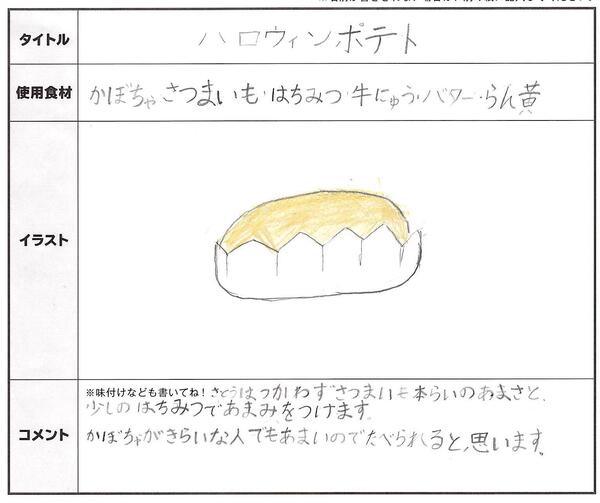 タイトル
ハロウィンポテト
使用食材
かぼちゃ さつまいも・はちみつ・牛にゅう・バター・らん黄
イラスト
コメント
※味付けなども書いてね！さとうはつかわずさつまいも本らいのあまさと、
少しのはちみつであまみをつけます。
かぼちゃがきらいな人でもあまいのでたべられると思います。